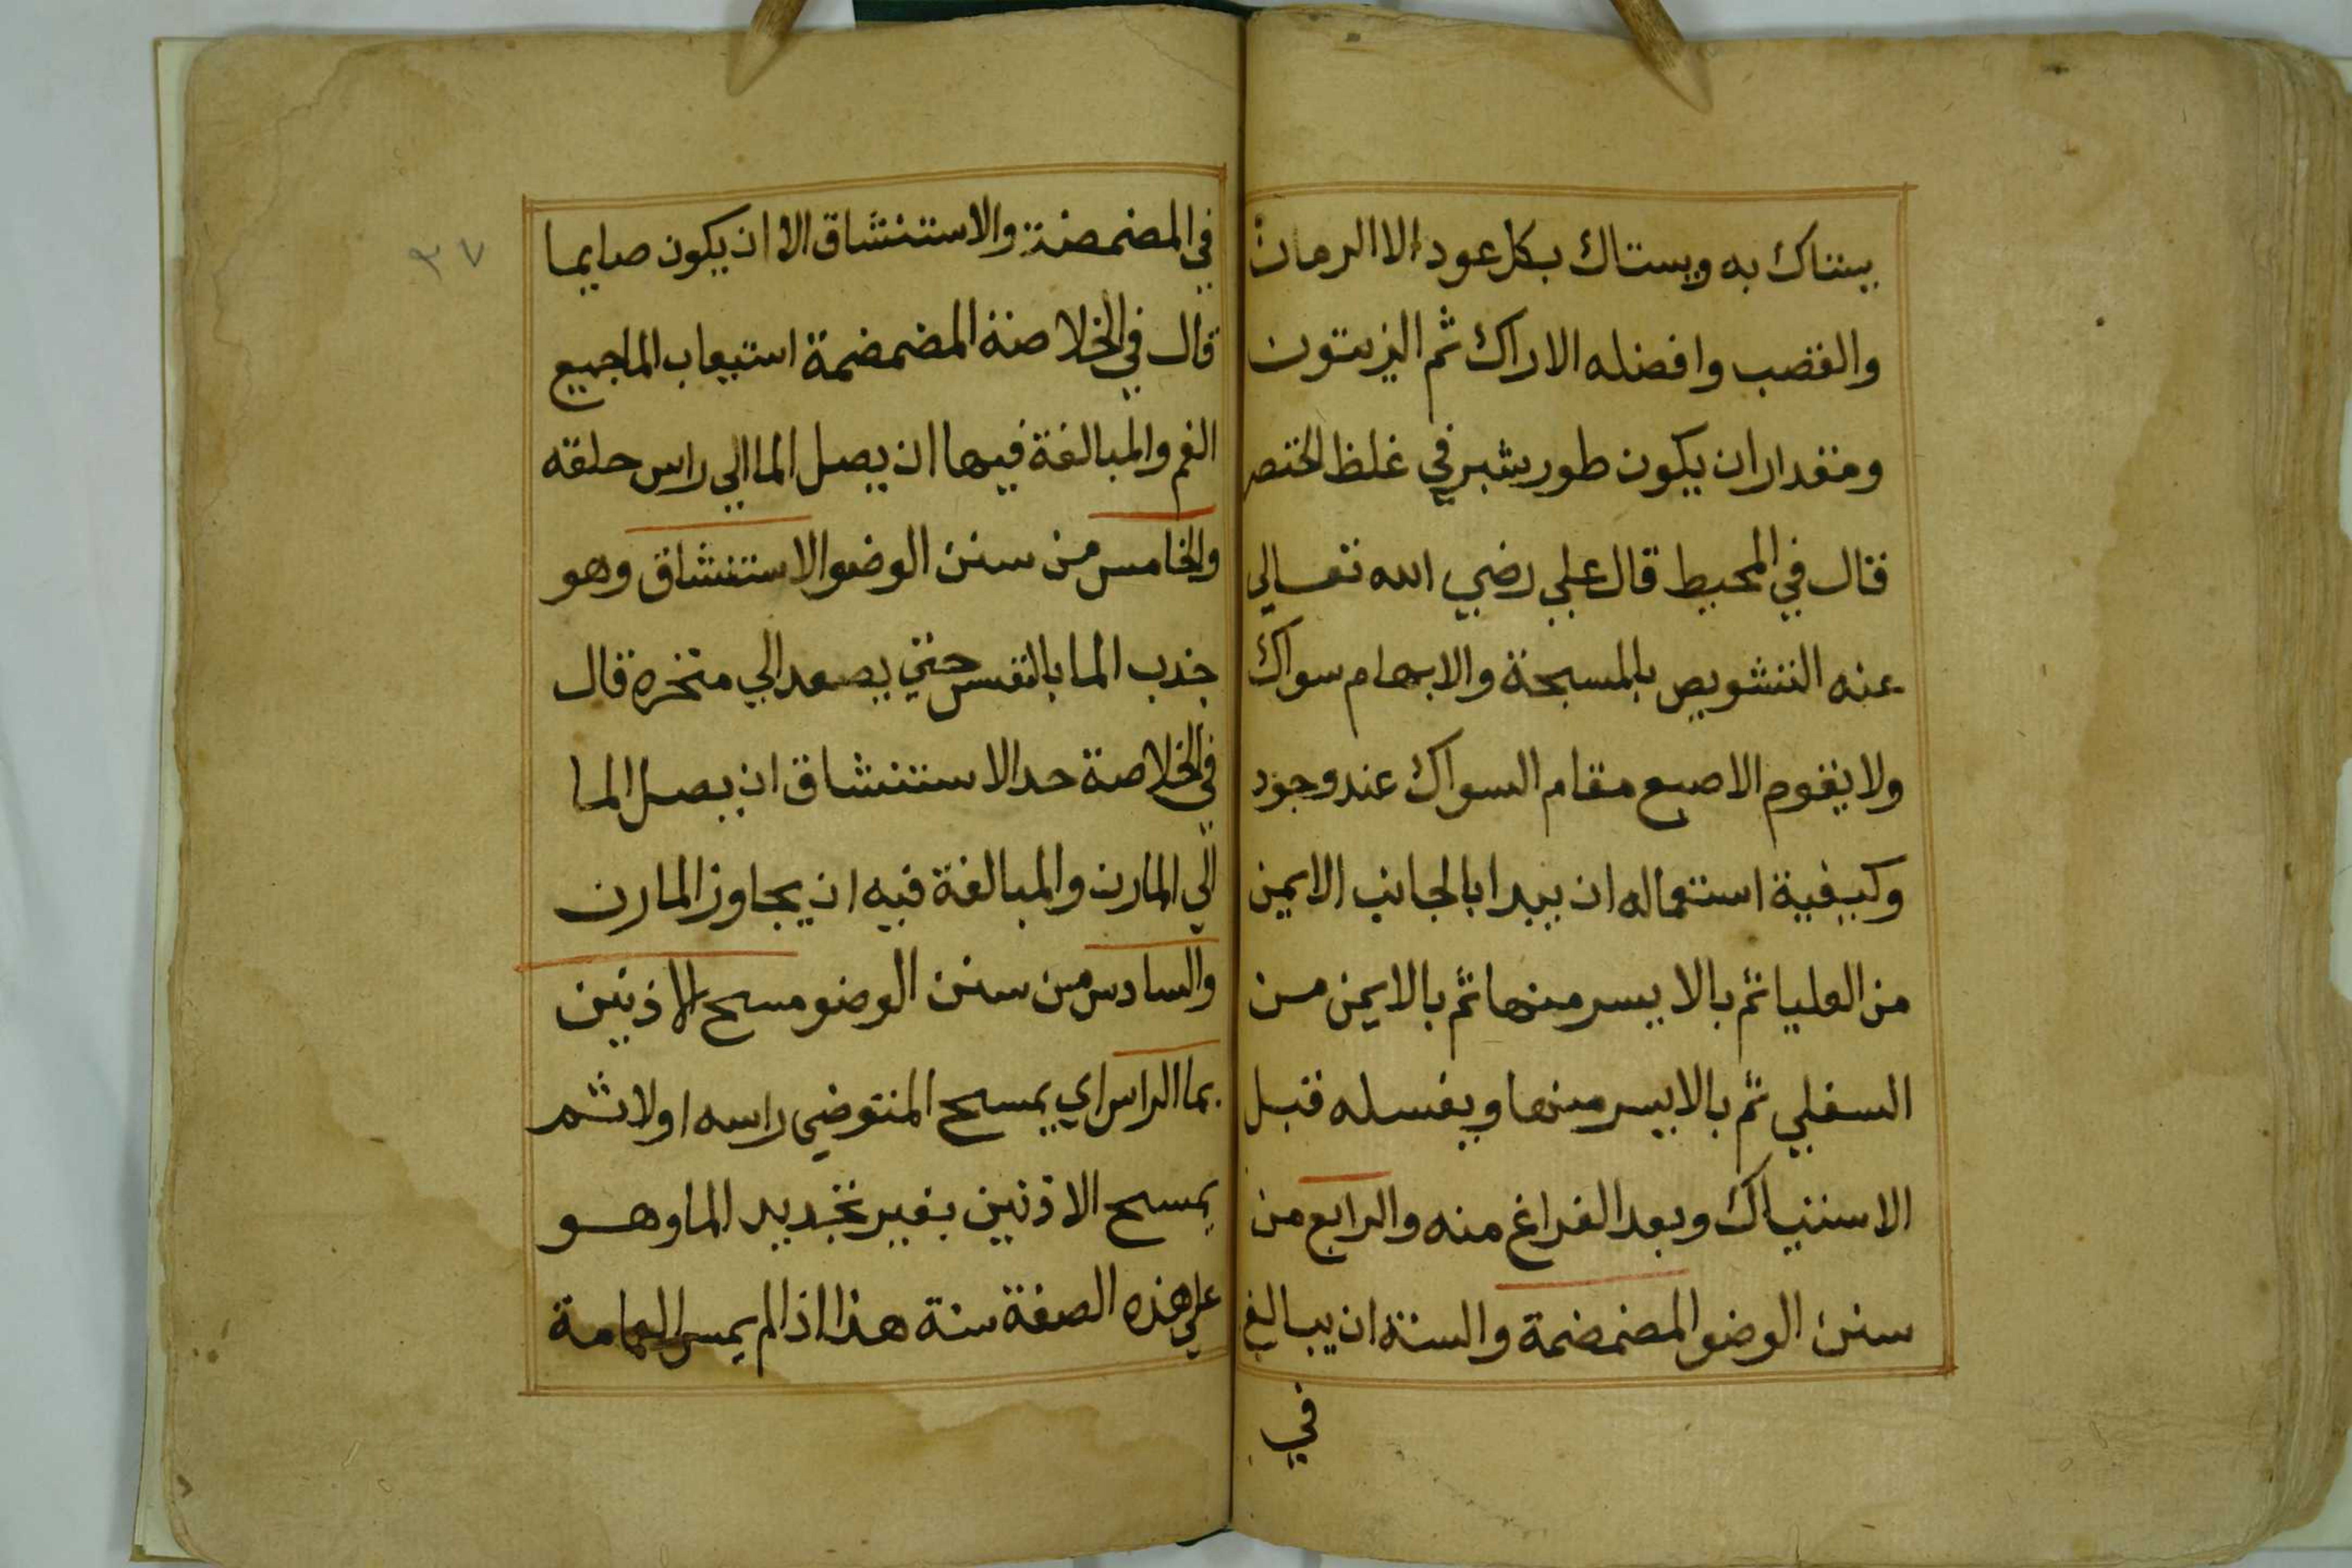 يستاك به ويستاك بكل عود الا الرمان
والقصب وافضله الاراك ثم الزيتون
ومقدار ان يكون طور شبر في غلظ الخنصر
قال في المحيط قال علي رضي الله تعالي
عنه التشويص بالمسبحة والابهام سواك
ولا يقوم الاصبع مقام السواك عند وجود
وكيفية استعماله ان يبدا بالجانب الايمن
من العليا ثم بالا يسر منها ثم بالايمن من
السفلي ثم بالايسر منها ويغسله قبل
الاستياك وبعد الفراغ منه والرابع من
سنن الوضو المضمضمة والسنة ان يبالغ
في
٣٧
في المضمضة والاستنشاق الا ان يكون صايما
قال في الخلاصة المضمضمة استيعاب الما جميع
الفم والمبالغة فيها ان يصل الما الي راس حلقه
والخامس من سنن الوضو الاستنشاق وهو
جذب الما بالنفس حتي يصعد الي منخره قال
في الخلاصة حد الاستنشاق ان يصل الما
الي المارن والمبالغة فيه ان يجاوز المارن
والسادس من سنن الوضو مسح الاذنين
بما الراس اي يمسح المتوضي راسه اولا ثم
يمسح الاذنين بغير تجديد الما وهو
علي هذه الصفة سنة هذا اذا لم يمس العمامة